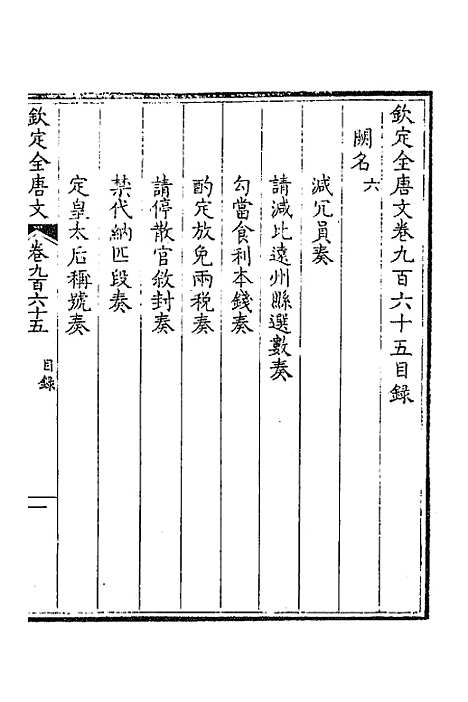 欽定全唐文卷九百六十五目録
闕名六
減冗員奏
請減比遠州縣選數奏
勾當食利本錢奏
酌定放免兩税奏
請停散官敘封奏
禁代納匹段奏
定皇太后稱號奏
欽定全唐文 卷九百六十五 目録 一